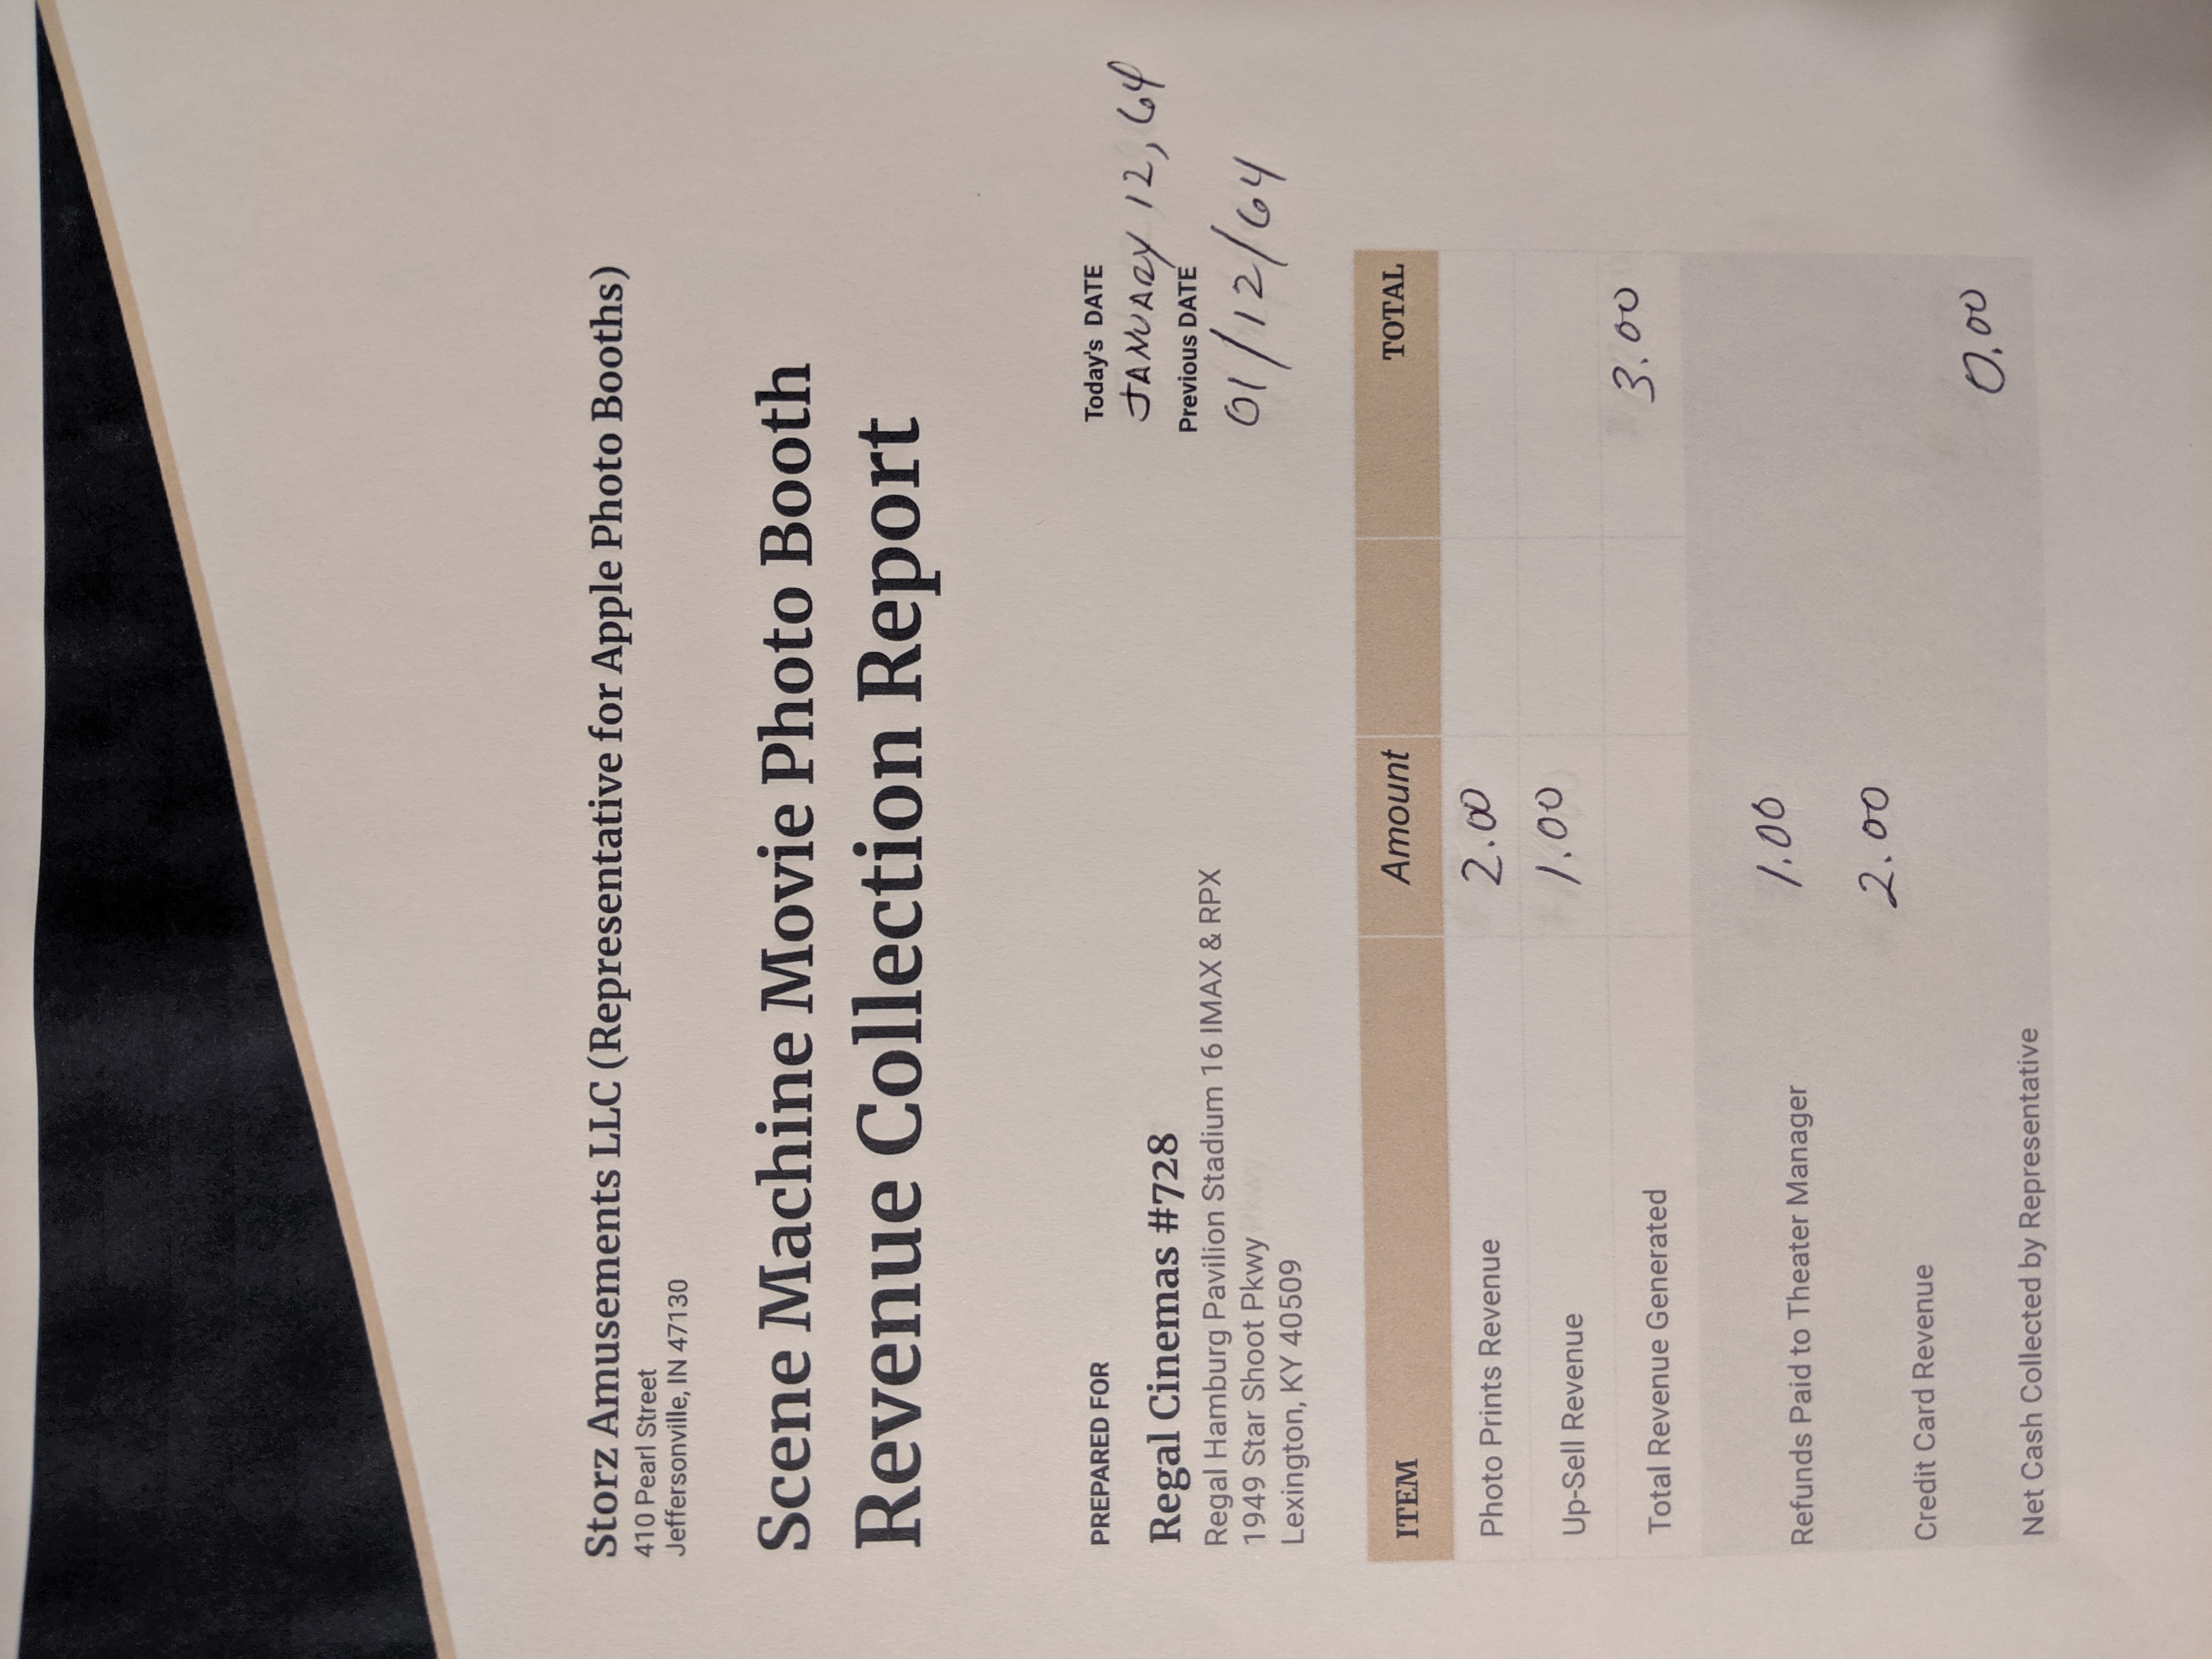 Storz Amusements LLC (Representative for Apple Photo Booths)
410 Pearl Street
Jeffersonville, IN 47130
Scene Machine Movie Photo Booth
Revenue Collection Report
PREPARED FOR
Regal Cinemas #728
Regal Hamburg Pavilion Stadium 16 IMAX & RPX
1949 Star Shoot Pkwy
Lexington, KY 40509
Today's DATE
JANUARY 12, 64
Previous DATE
01/12/64
ITEM Amount TOTAL
Photo Prints Revenue 2.00
Up-Sell Revenue 1.00
Total Revenue Generated 3.00
Refunds Paid to Theater Manager 1.00
Credit Card Revenue 2.00
Net Cash Collected by Representative 0.00